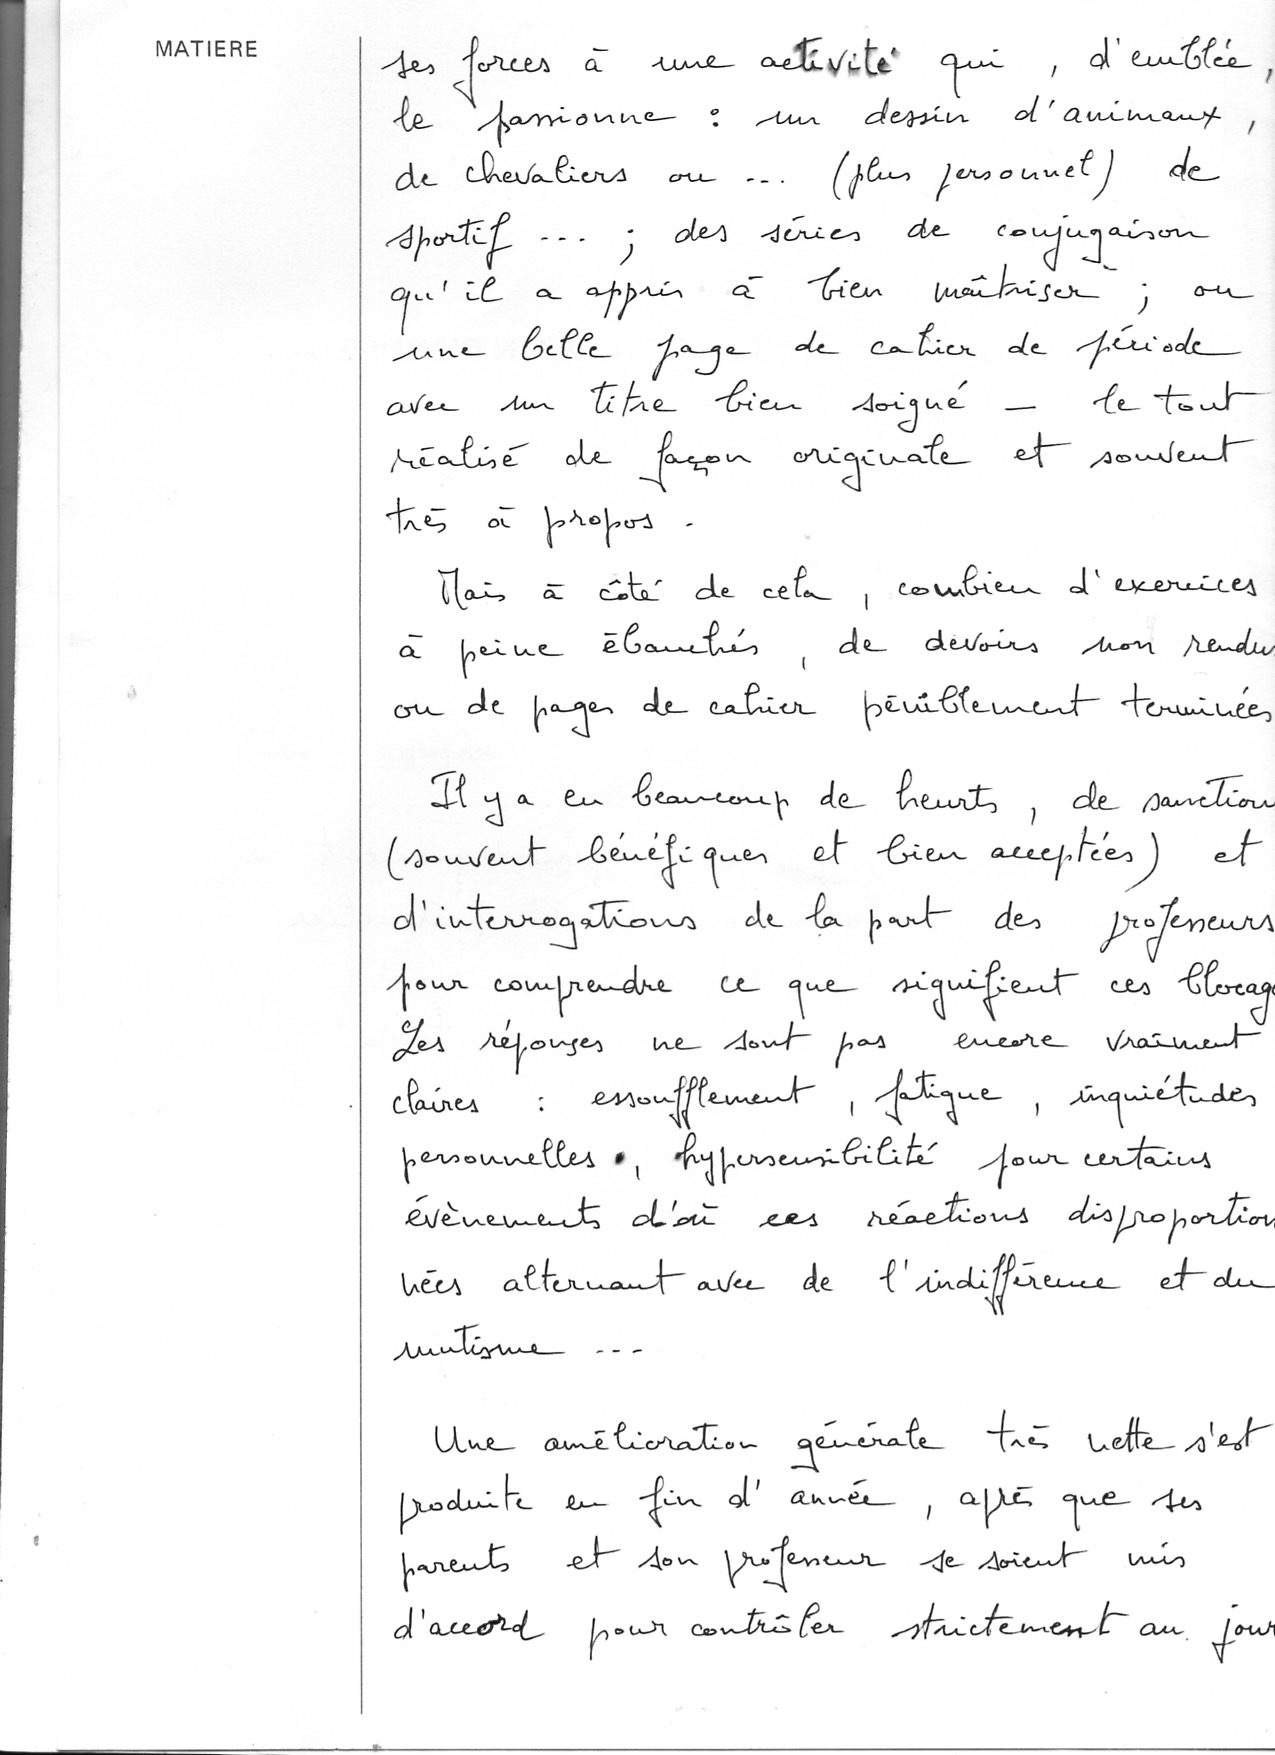 MATIERE
ses forces à une activité qui, d'emblée,
le passionne : un dessin d'animaux,
de chevaliers ou ... (plus personnel) de
sportif ... ; des séries de conjugaison
qu'il a appris à bien maîtriser ; ou
une belle page de cahier de période
avec un titre bien soigné – le tout
réalisé de façon originale et souvent
très à propos.
Mais à côté de cela, combien d'exercices
à peine ébauchés, de devoirs non rendus
ou de pages de cahier péniblement terminées
Il y a eu beaucoup de heurts, de sanction
(souvent bénéfiques et bien acceptées) et
d'interrogations de la part des professeurs
pour comprendre ce que signifient ces blocag
Les réponses ne sont pas encore vraiment
claires : essoufflement, fatigue, inquiétudes
personnelles, hypersensibilité pour certains
évènements d'où ces réactions disproportion
nées alternant avec de l'indifférence et du
mutisme ...
Une amélioration générale très nette s'est
produite en fin d'année, après que ses
parents et son professeur se soient mis
d'accord pour contrôler strictement au jour